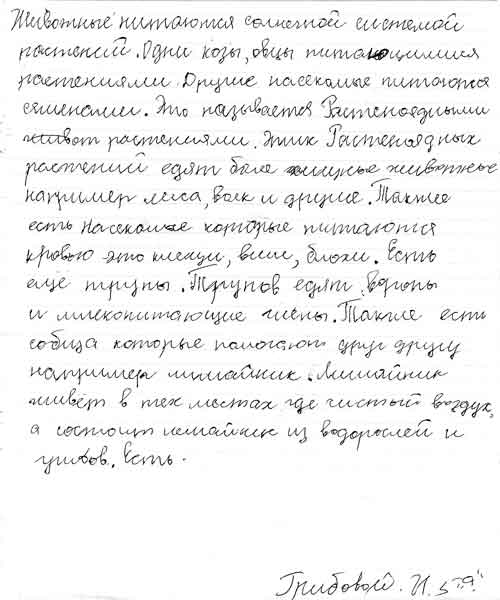 Животные питаются солнечной системой
растений. Одни козы, овцы питающимися
растениями. Другие насекомые питаются
семенами. Это называется Растеноядными
живот растениями. Этих Растеноядных
растений едят боле хищные животные
например лиса, волк и другие. Также
есть насекомые которые питаются
кровью это клещи, вши, блохи. Есть
ещё трупы. Трупов едят вороны
и млекопитающие гиены. Также есть
собща которые помогают друг другу
например лишайник. Лишайник
живёт в тех местах где чистый воздух,
а состоит лешайник из водорослей и
грибов. Есть.
Грибовой. И. 5 "Я"